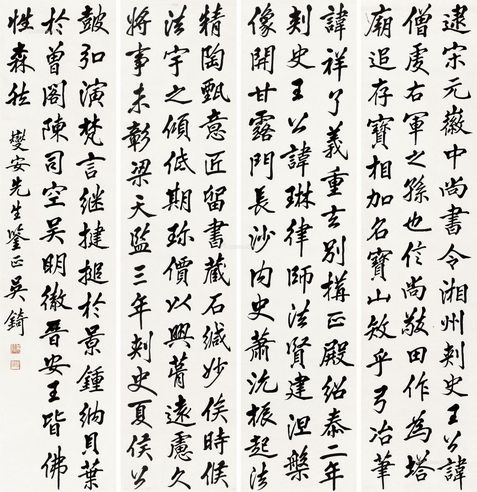 逮宋元徽中尚書令湘州刺史王公諱
僧虔右軍之孫也信尚敬田作為塔
廟追存寶相加名寶山矧乎弓冶筆
諱祥了義重玄別構正殿紹泰二年
刺史王公諱琳律師法賢建涅槃
像開甘露門長沙内史蕭沇振起法
精陶甄意匠留書藏石緘妙俟時候
法宇之傾低期珍價以興葺遠慮久
將事未彰梁天監三年刺史夏侯公
鼓弘演梵言繼揵搥於景鍾納貝葉
於曾閣陳司空吳明徹晉安王皆佛
性森然
燮安先生鑒正吳錡